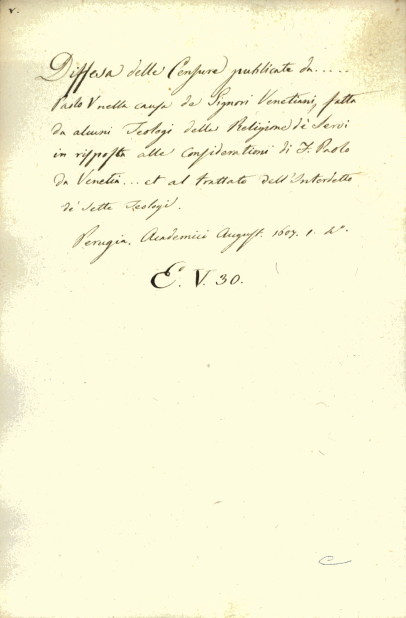 Diffesa delle Censure publicate da.....
Paolo V nella causa de Signori Venetiani, fatta
da alcuni Teologi della Religione de Servi
in risposta alle Considerationi di F. Paolo
da Venetia... et al trattato dell'Interdetto
de' Sette Teologi.
Perugia. Academici August. 1607. 1.
E. V. 30.